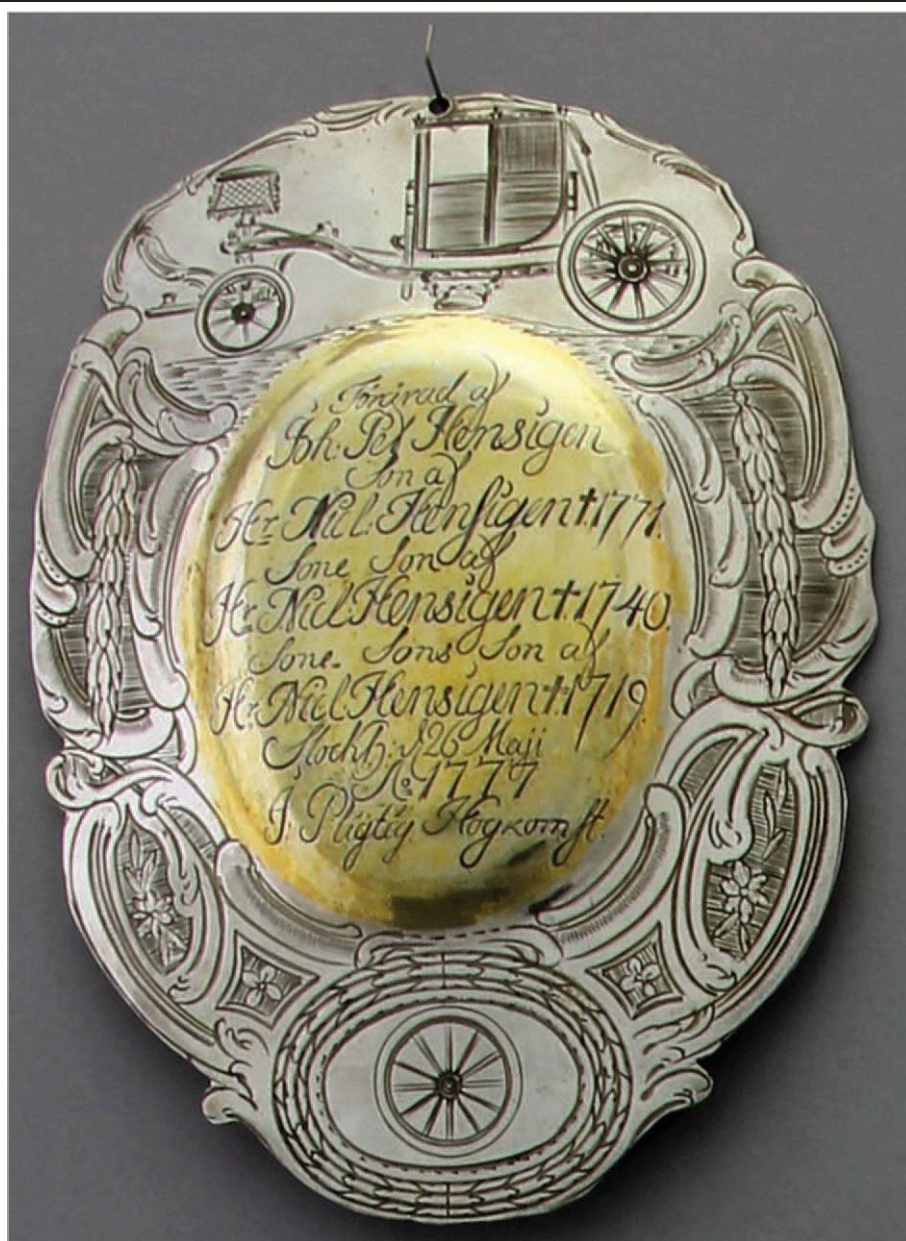 Förärad af
Joh: Pet Hensigen
Son af
Hr. Nicl. Hensigen † 1771.
Sone Son af
Hr. Nicl. Hensigen † 1740.
Sone Sons Son af
Hr. Nicl. Hensigen † 1719.
Stockh: d 26 Maji
Ao 1777
J: Pligtig Hogkomst.